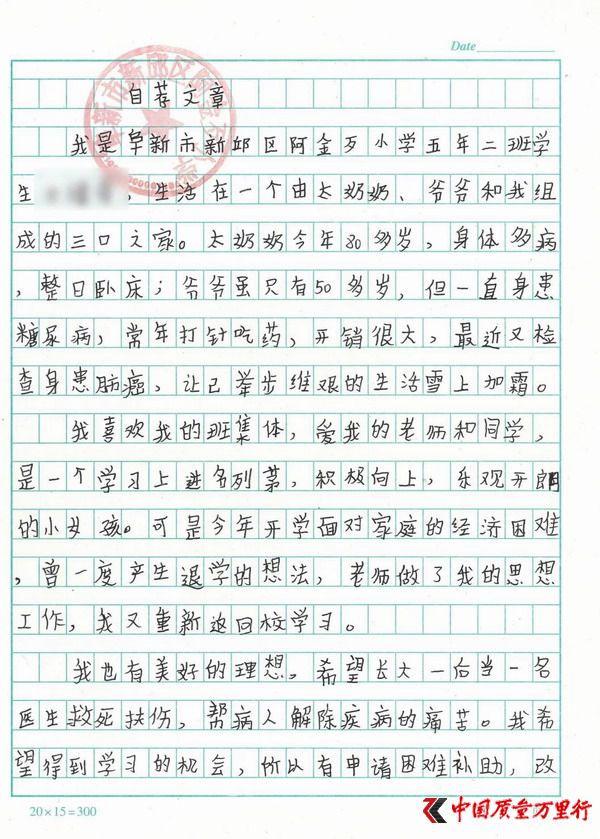 Date
自荐文章
我是阜新市新邱区阿金歹小学五年二班学
生，生活在一个由太奶奶、爷爷和我组
成的三口之家。太奶奶今年80多岁，身体多病
，整日卧床；爷爷虽只有50多岁，但一直身患
糖尿病，常年打针吃药，开销很大，最近又检
查身患肺癌，让已举步维艰的生活雪上加霜。
我喜欢我的班集体，爱我的老师和同学，
是一个学习上进名列第，积极向上，乐观开朗
的小女孩。可是今年开学面对家庭的经济困难
，曾一度产生退学的想法，老师做了我的思想
工作，我又重新返回校学习。
我也有美好的理想。希望长大一后当一名
医生救死扶伤，帮病人解除疾病的痛苦。我希
望得到学习的机会，所以有申请困难补助，改
20×15=300
中国质量万里行